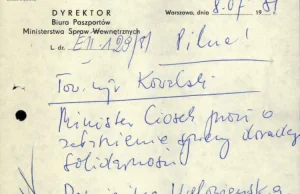 DYREKTOR
Biura Paszportów
Ministerstwa Spraw Wewnętrznych
Warszawa, dnia 8.07 1981
L. dz. EII-1299/81
Pilne!
Tow. mjr Kowalski
Minister Ciosek prosi o
załatwienie sprawy doradcy
Solidarności